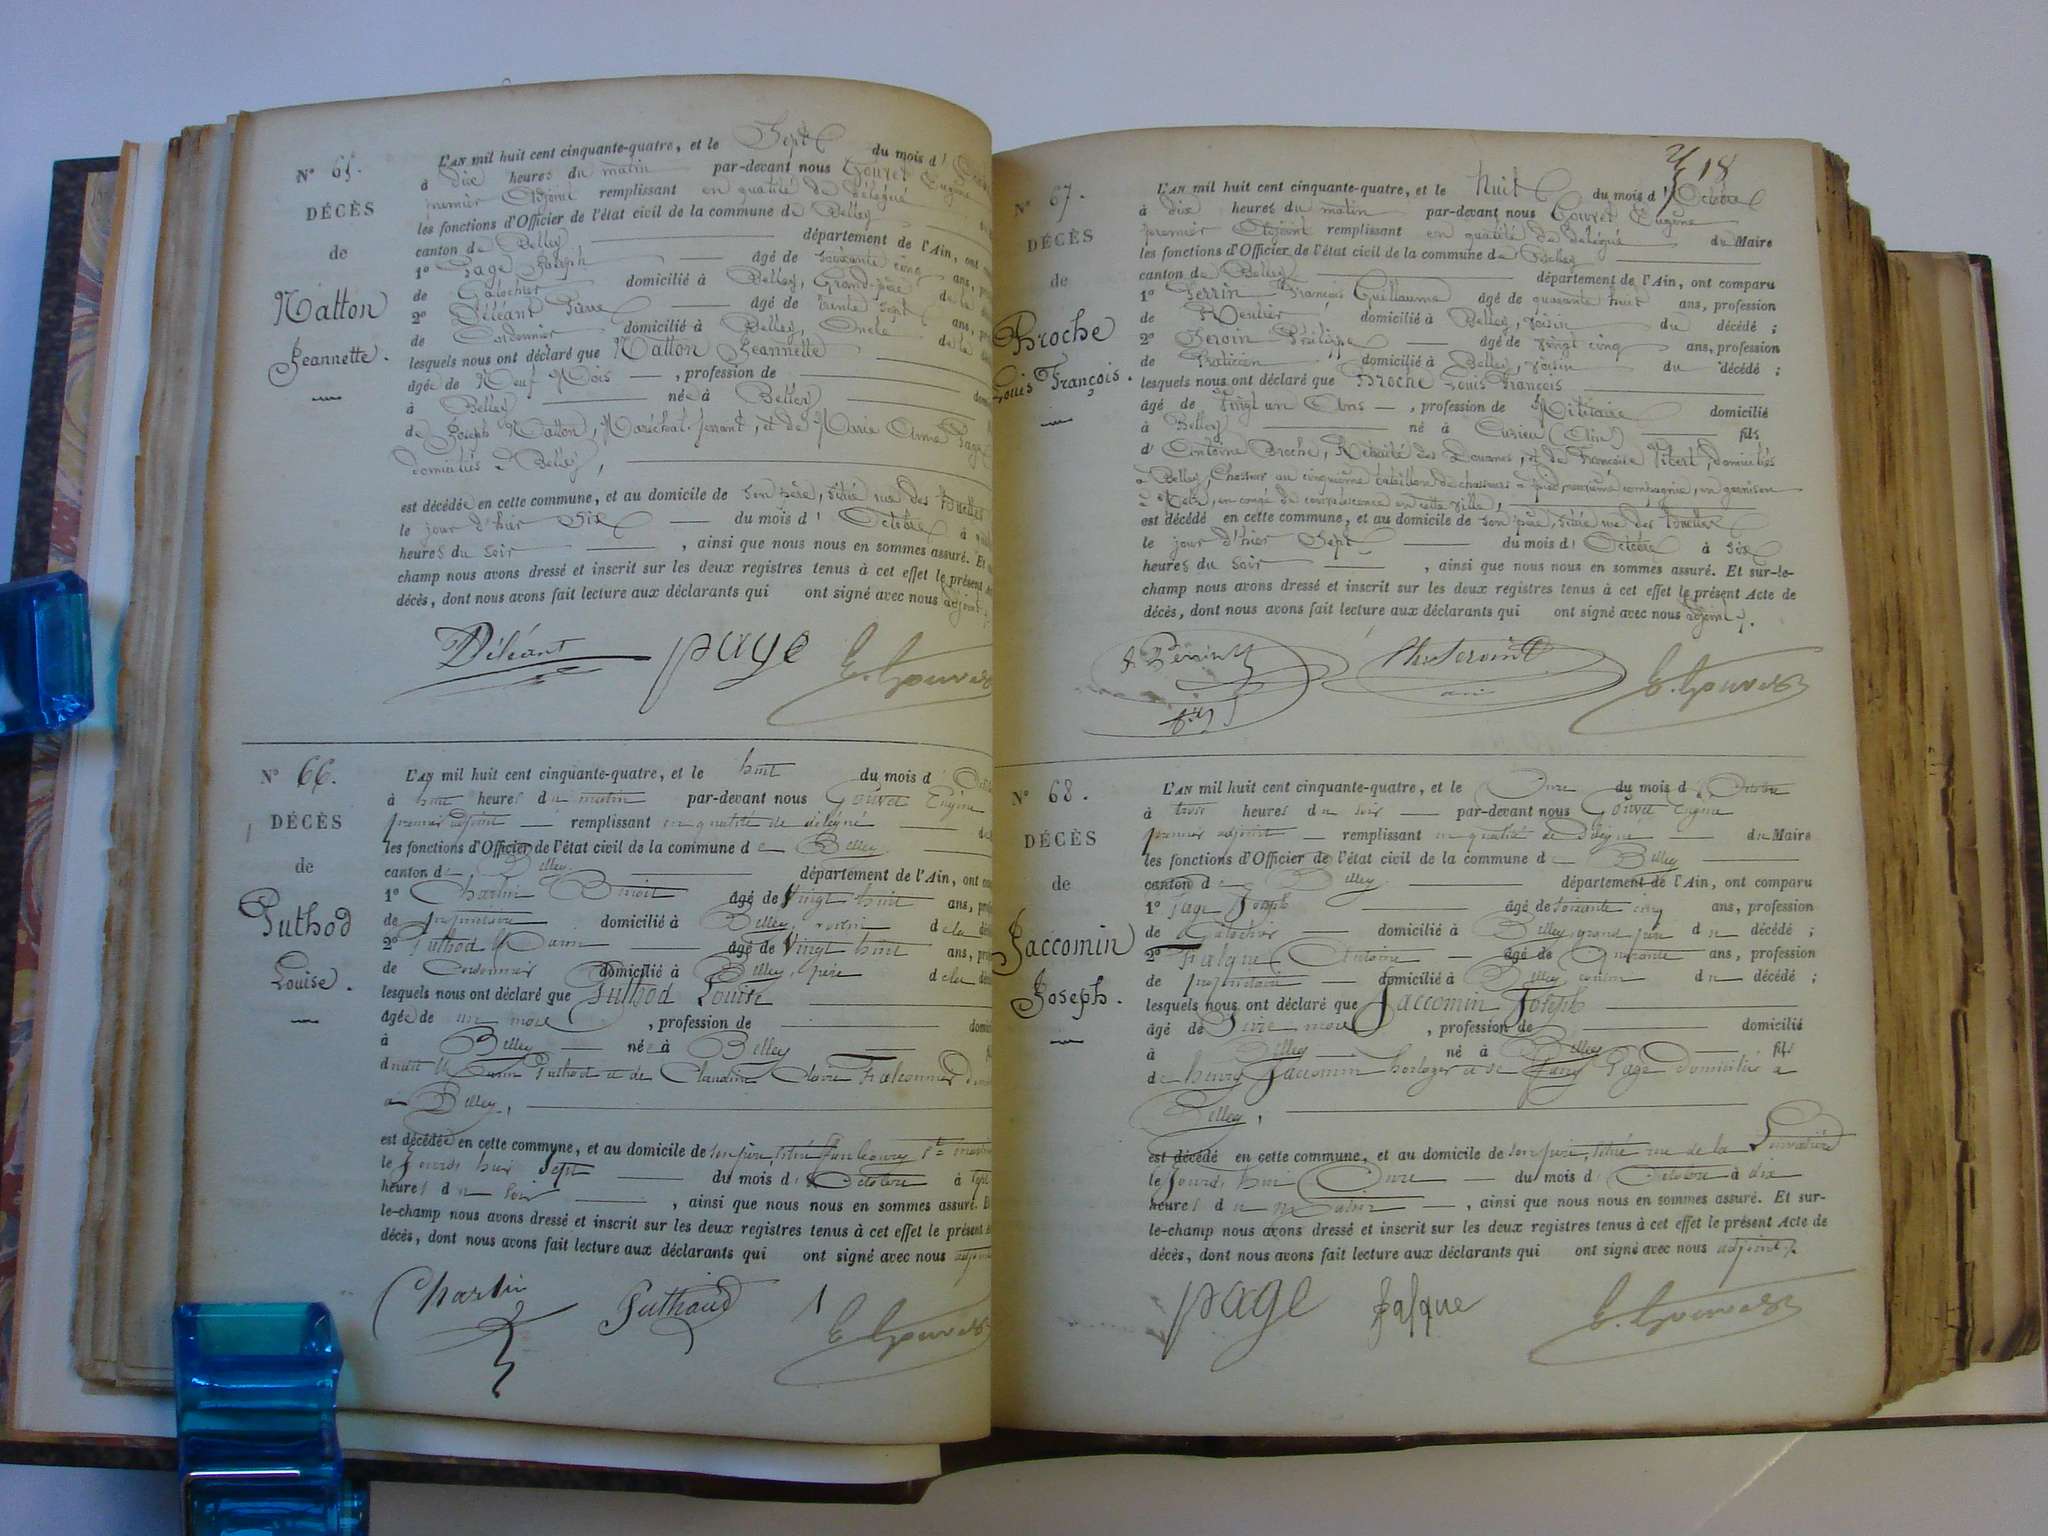 N° 65.
DÉCÈS
de
Natton
Jeannette.
L'AN mil huit cent cinquante-quatre, et le Sept du mois d'
à dix heures du matin par-devant nous Gouvet Eugène
premier Adjoint remplissant en qualité de délégué
les fonctions d'Officier de l'état civil de la commune de Belley
canton de Belley département de l'Ain, ont
1° Page Joseph âgé de soixante cinq ans,
de Galochier domicilié à Belley, Grand-père de la
2° Déléant Pierre âgé de trente sept ans,
de Cordonnier domicilié à Belley, Oncle de la
lesquels nous ont déclaré que Natton Jeannette
âgée de Neuf Mois , profession de
à Belley née à Belley
de Joseph Natton, Maréchal-ferrant, et de Marie Anne Page
domiciliés à Belley,
est décédée en cette commune, et au domicile de son père, situé rue des
le jour d'hier Six du mois d' Octobre à
heures du soir , ainsi que nous nous en sommes assuré. Et
champ nous avons dressé et inscrit sur les deux registres tenus à cet effet le présent
décès, dont nous avons fait lecture aux déclarants qui ont signé avec nous adjoint.
Déléant page E. Gouvet
N° 66.
DÉCÈS
de
Puthod
Louise.
L'AN mil huit cent cinquante-quatre, et le huit du mois d
à huit heures du matin par-devant nous Gouvet Eugène
premier adjoint remplissant en qualité de délégué
les fonctions d'Officier de l'état civil de la commune de Belley
canton de Belley département de l'Ain, ont
1° Charlin Benoit âgé de Vingt huit ans,
de propriétaire domicilié à Belley, voisin de la
2° Puthod âgé de Vingt huit ans,
de Cordonnier domicilié à Belley, père de la
lesquels nous ont déclaré que Puthod Louise
âgée de un mois , profession de
à Belley née à Belley
Puthod et de Claudine Claire Falconnier
à Belley,
est décédée en cette commune, et au domicile de son père, situé faubourg St
le jourd'hier sept du mois d'Octobre à sept
heures du soir , ainsi que nous nous en sommes assuré.
le-champ nous avons dressé et inscrit sur les deux registres tenus à cet effet le présent
décès, dont nous avons fait lecture aux déclarants qui ont signé avec nous
Charlin Puthaud E. Gouvet
18
N° 67.
DÉCÈS
de
Broche
Louis François.
L'AN mil huit cent cinquante-quatre, et le huit du mois d'Octobre
à dix heures du matin par-devant nous Gouvet Eugène
premier Adjoint remplissant en qualité de délégué du Maire
les fonctions d'Officier de l'état civil de la commune de Belley
canton de Belley département de l'Ain, ont comparu
1° Perrin François Guillaume âgé de quarante huit ans, profession
de Rentier domicilié à Belley, voisin du décédé ;
2° Seroin Philippe âgé de vingt cinq ans, profession
de Praticien domicilié à Belley, voisin du décédé ;
lesquels nous ont déclaré que Broche Louis François
âgé de Vingt un Ans , profession de Militaire domicilié
à Belley né à Cuzieu (Ain) fils
d'Antoine Broche, Retraité des Douanes, et de Françoise domiciliés
à Belley, Chasseur au cinquième bataillon de chasseurs à pied, compagnie, en garnison
à Metz, en congé de convalescence en cette ville,
est décédé en cette commune, et au domicile de son père, située rue des
le jour d'hier Sept du mois d'Octobre à six
heures du soir , ainsi que nous nous en sommes assuré. Et sur-le-
champ nous avons dressé et inscrit sur les deux registres tenus à cet effet le présent Acte de
décès, dont nous avons fait lecture aux déclarants qui ont signé avec nous adjoint.
E. Gouvet
N° 68.
DÉCÈS
de
Jaccomin
Joseph.
L'AN mil huit cent cinquante-quatre, et le Onze du mois d'Octobre
à trois heures du soir par-devant nous Gouvet Eugène
premier adjoint remplissant en qualité de délégué du Maire
les fonctions d'Officier de l'état civil de la commune de Belley
canton de Belley département de l'Ain, ont comparu
1° Page Joseph âgé de soixante cinq ans, profession
de Galochier domicilié à Belley, grand père du décédé ;
2° Falque Antoine âgé de ans, profession
de propriétaire domicilié à Belley, cousin du décédé ;
lesquels nous ont déclaré que Jaccomin Joseph
âgé de mois , profession de domicilié
à Belley né à Belley fils
de henry Jaccomin horloger et de Page domiciliés à
Belley,
est décédé en cette commune, et au domicile de son père, située rue de la
le jourd'hui Onze du mois d'Octobre à dix
heures du matin , ainsi que nous nous en sommes assuré. Et sur-
le-champ nous avons dressé et inscrit sur les deux registres tenus à cet effet le présent Acte de
décès, dont nous avons fait lecture aux déclarants qui ont signé avec nous adjoint.
page falque E. Gouvet